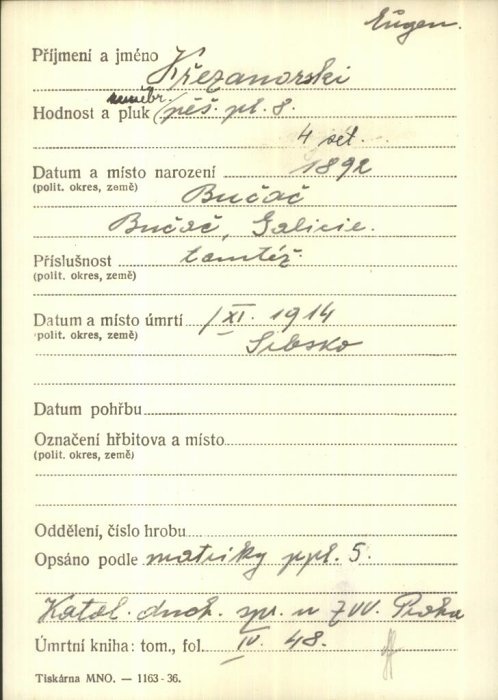 Eugen.
Příjmení a jméno Křezanorski
Hodnost a pluk pěš. pl. 8.
4 set.
Datum a místo narození 1892
(polit. okres, země) Bučač
Bučač, Galicie.
Příslušnost tamtéž.
(polit. okres, země)
Datum a místo úmrtí /XI. 1914
(polit. okres, země) Srbsko
Datum pohřbu
Označení hřbitova a místo
(polit. okres, země)
Oddělení, číslo hrobu
Opsáno podle matriky ppl. 5.
Katol. duch. spr. u ZVV. Praha
Úmrtní kniha: tom., fol. IV. 48.
Tiskárna MNO. — 1163-36.